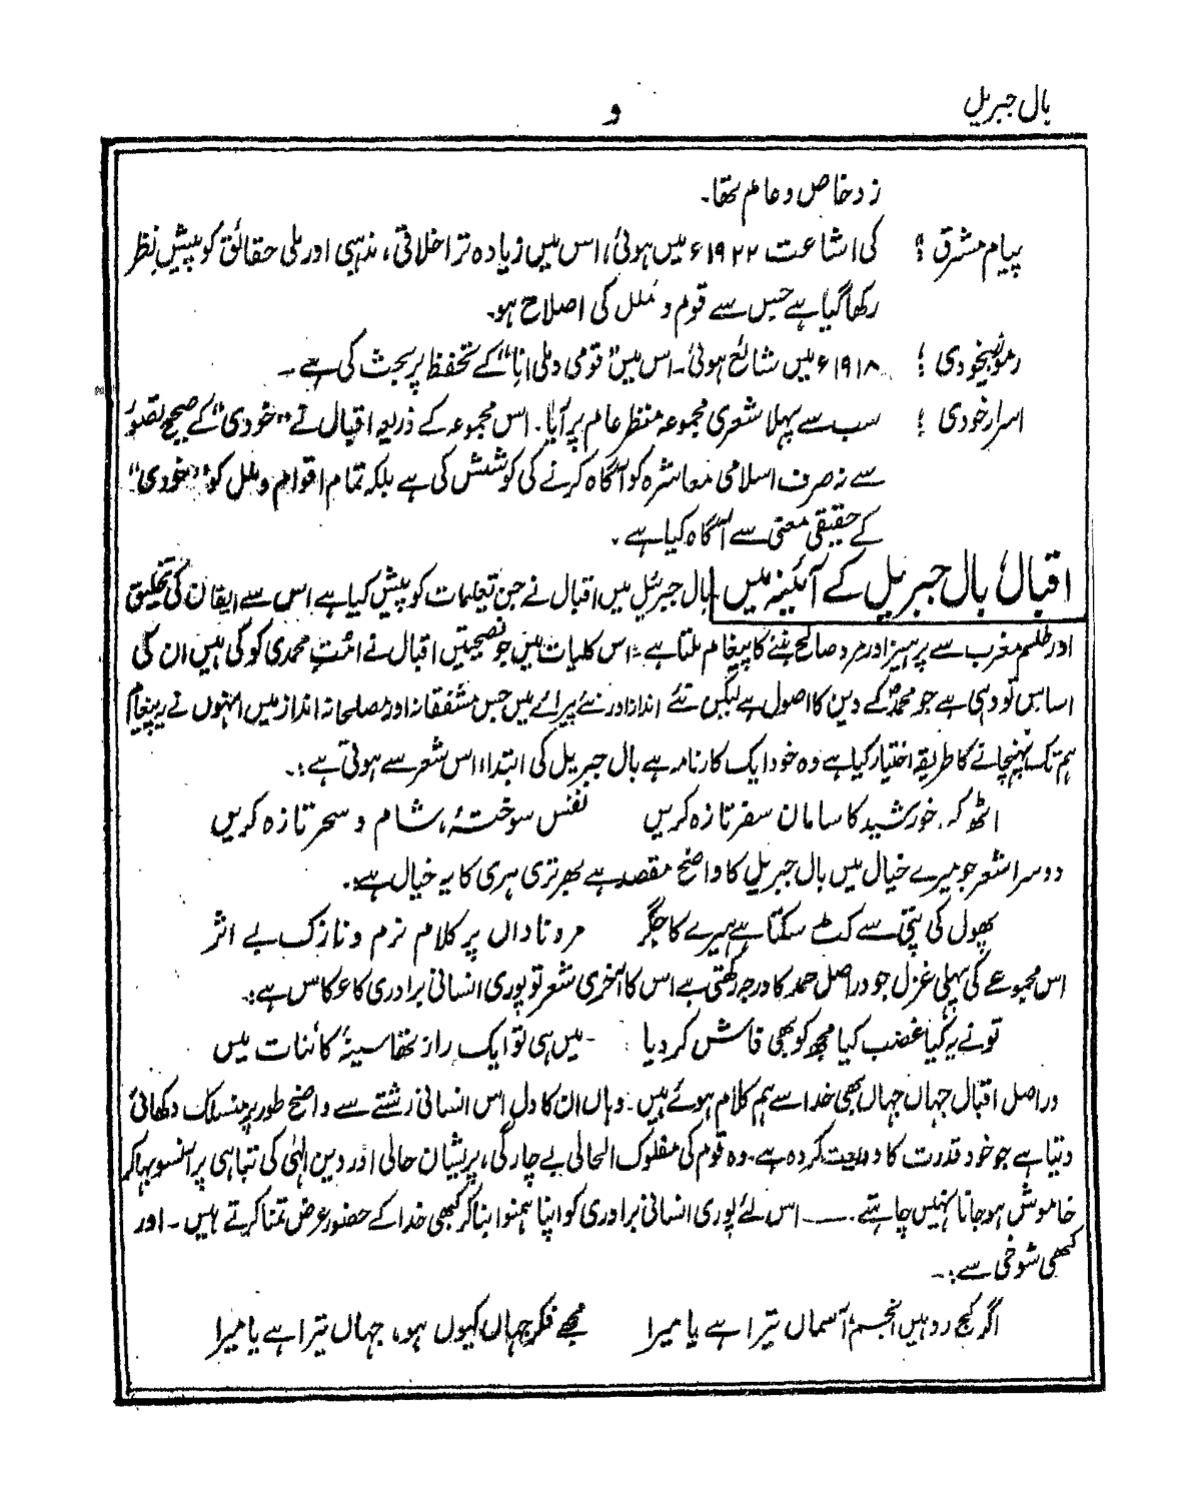 بال جبریل
و
زد خاص و عام تھا۔
پیام مشرق ؟ کی اشاعت ۱۹۲۲ء میں ہوئی، اس میں زیادہ تر اخلاقی، مذہبی اور ملی حقائق کو پیش نظر
رکھا گیا ہے جس سے قوم و ملل کی اصلاح ہو۔
رموز بیخودی ؛ ۱۹۱۸ء میں شائع ہوئی۔ اس میں "قومی و ملی انا" کے تحفظ پر بحث کی ہے۔
اسرار خودی ؛ سب سے پہلا شعری مجموعہ منظر عام پر آیا۔ اس مجموعہ کے ذریعہ اقبال نے "خودی" کے صحیح تصور
سے نہ صرف اسلامی معاشرہ کو آگاہ کرنے کی کوشش کی ہے بلکہ تمام اقوام و ملل کو "خودی"
کے حقیقی معنی سے آگاہ کیا ہے۔
اقبال بال جبریل کے آئینہ میں بال جبریل میں اقبال نے جن تعلیمات کو پیش کیا ہے اس سے ایقان کی تخلیق
اور طلسم مغرب سے پرہیز اور مرد صالح بننے کا پیغام ملتا ہے۔ اس کلیات میں جو نصیحتیں اقبال نے امت محمدی کو کی ہیں ان کی
اساس تو وہی ہے جو محمدؐ کے دین کا اصول ہے لیکن نئے انداز اور نئے پیرائے میں جس مشفقانہ اور مصلحانہ انداز میں انہوں نے یہ پیغام
ہم تک پہنچانے کا طریقہ اختیار کیا ہے وہ خود ایک کارنامہ ہے بال جبریل کی ابتداء اس شعر سے ہوتی ہے:۔
اٹھ کہ خورشید کا سامان سفر تازہ کریں نفس سوختۂ شام و سحر تازہ کریں
دوسرا شعر جو میرے خیال میں بال جبریل کا واضح مقصد ہے بھرتری ہری کا یہ خیال ہے۔
پھول کی پتی سے کٹ سکتا ہے ہیرے کا جگر مرد ناداں پر کلام نرم و نازک بے اثر
اس مجموعے کی پہلی غزل جو دراصل حمد کا درجہ رکھتی ہے اس کا آخری شعر تو پوری انسانی برادری کا عکاس ہے:۔
تو نے یہ کیا غضب کیا مجھ کو بھی فاش کر دیا میں ہی تو ایک راز تھا سینۂ کائنات میں
دراصل اقبال جہاں جہاں بھی خدا سے ہم کلام ہوئے ہیں۔ وہاں ان کا دل اس انسانی رشتے سے واضح طور پر منسلک دکھائی
دیتا ہے جو خود قدرت کا ودیعت کردہ ہے۔ وہ قوم کی مفلوک الحالی بے چارگی، پریشان حالی اور دین الٰہی کی تباہی پر آنسو بہا کر
خاموش ہو جانا نہیں چاہتے۔ ــــ اس لئے پوری انسانی برادری کو اپنا ہمنوا بنا کر کبھی خدا کے حضور عرض تمنا کرتے ہیں۔ اور
کبھی شوخی سے:۔
اگر کج رو ہیں انجم آسماں تیرا ہے یا میرا مجھے فکر جہاں کیوں ہو، جہاں تیرا ہے یا میرا